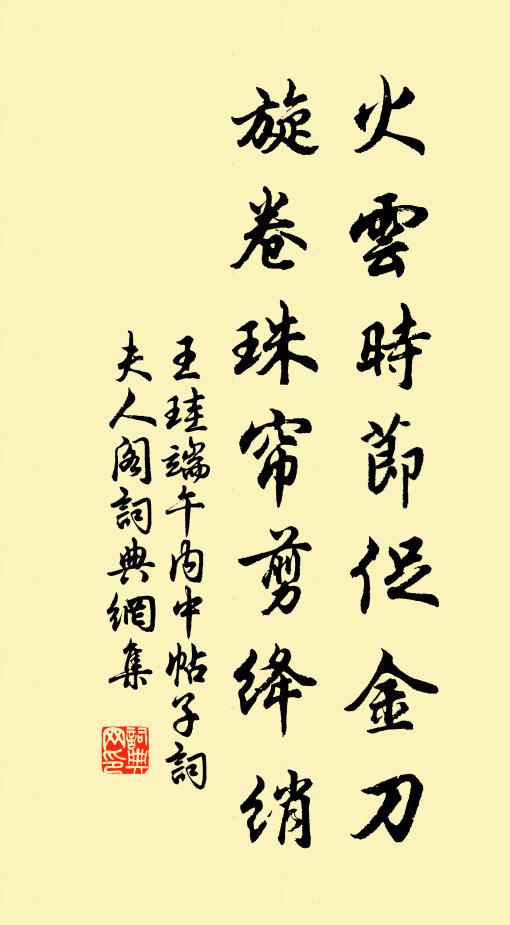 火雲時節促金刀
旋卷珠帘剪绛绡
王珪端午内中帖子詞
夫人阁詞典網集
詞典网印